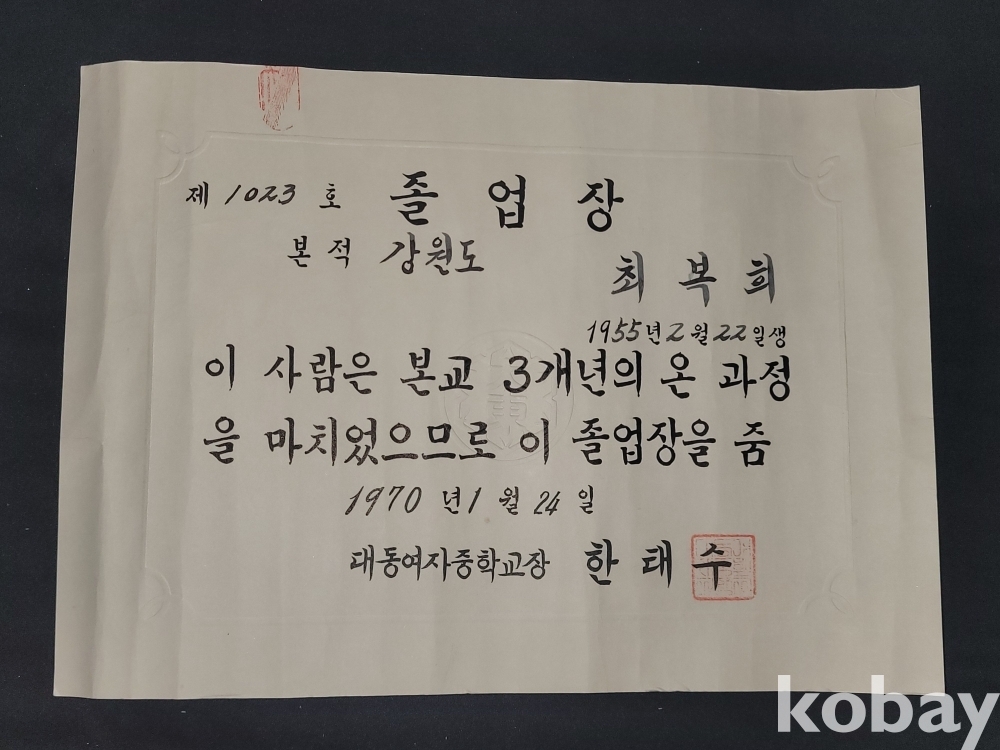 제 1023 호 졸 업 장
본 적 강원도
최 복 희
1955년 2월 22일생
이 사람은 본교 3개년의 온 과정
을 마치었으므로 이 졸업장을 줌
1970 년 1 월 24 일
대동여자중학교장 한 태 수
kobay